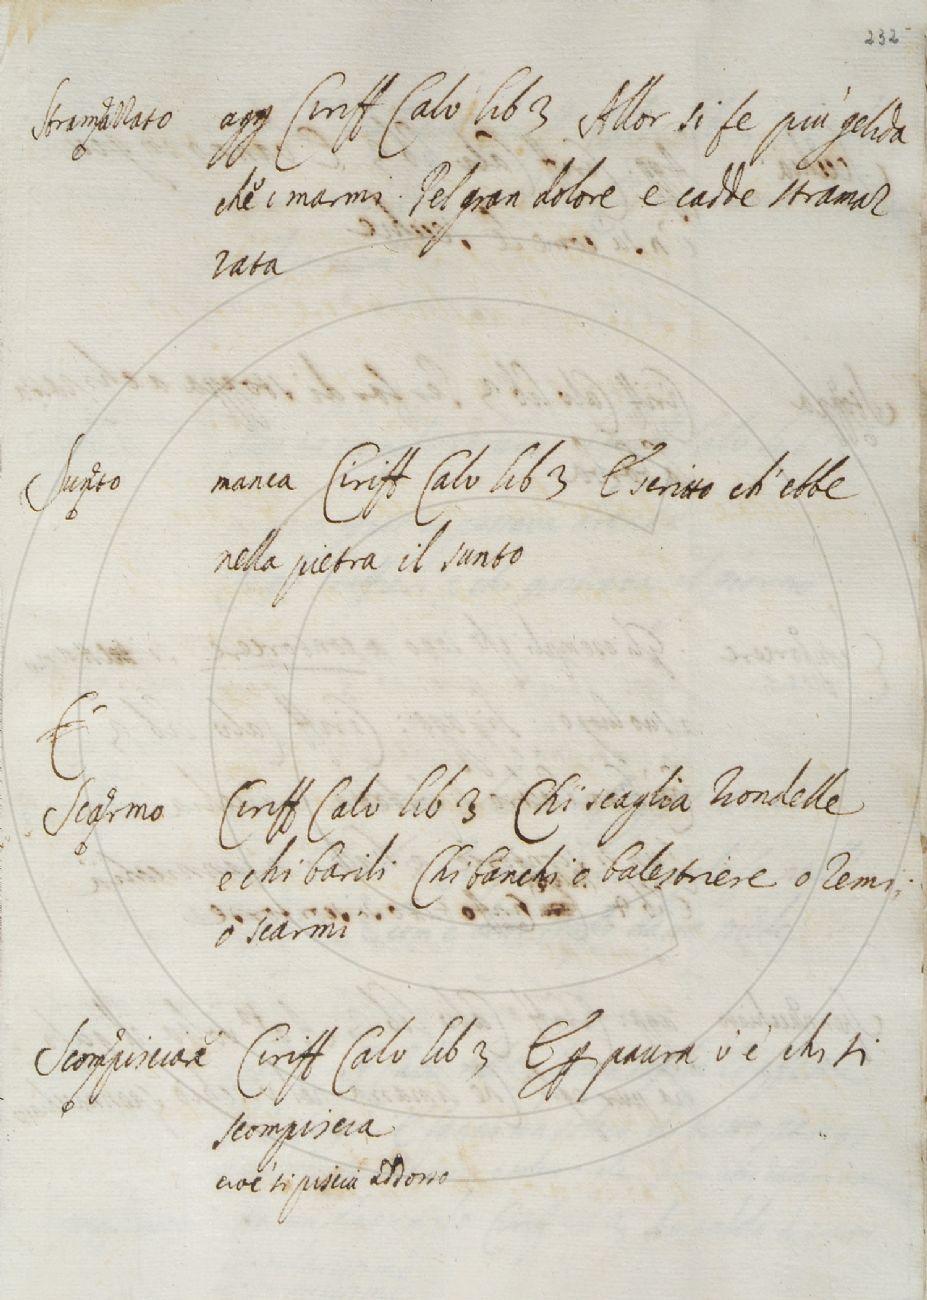 232
Stramazzato agg Ciriff Calv lib 3 Allor si fe più gelida
che i marmi. Pel gran dolore e cadde stramaz
zata
Sunto manca Ciriff Calv lib 3 E scritto ch'ebbe
nella pietra il sunto
Scarmo Ciriff Calv lib 3 Chi scaglia rondelle
e chi barili Chi banchi o balestriere o remi
o scarmi
Scompisciare Ciriff Calv lib 3 E p paura v'è chi si
scompiscia
cioè si piscia addosso